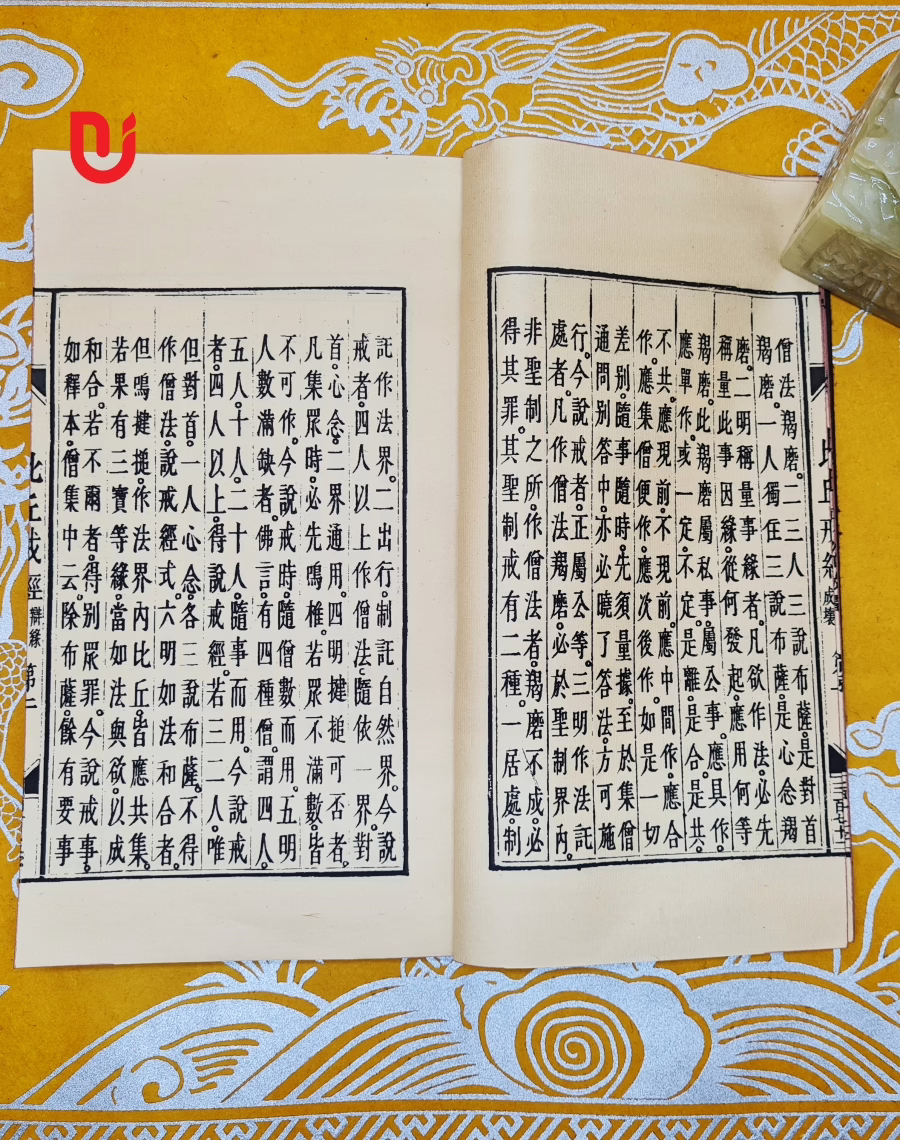 僧法羯磨。二三人三說布薩。是對首
羯磨。一人獨住三說布薩。是心念羯
磨。二明稱量事緣者。凡欲作法。必先
稱量此事因緣。從何發起。應用何等
羯磨。此羯磨屬私事。屬公事。應具作。
應單作。或一定。不定。是離。是合。是共。
不共。應現前。不現前。應中間作。應合
作。應集僧便作。應次後作。如是一切
差別。隨事隨時。先須量據。至於集僧
通問別答中。亦必曉了答法。方可施
行。今說戒者。正屬公等。三明作法託
處者。凡作僧法羯磨。必於聖制界內。
非聖制之所。作僧法者。羯磨不成。必
得其罪。其聖制戒有二種。一居處。制
託作法界。二出行。制託自然界。今說
戒者。四人以上作僧法。隨依一界。對
首。心念。二界通用。四明揵搥可否者。
凡集眾時。必先鳴椎。若眾不滿數。皆
不可作。今說戒時。隨僧數而用。五明
人數滿缺者。佛言。有四種僧。謂四人。
五人。十人。二十人。隨事而用。今說戒
者。四人以上。得說戒經。若三二人。唯
但對首。一人心念。各三說布薩。不得
作僧法。說戒經式。六明如法和合者。
但鳴揵搥。作法界內比丘。皆應共集。
若果有三寶等緣。當如法與欲。以成
和合。若不爾者。得別眾罪。今說戒事。
如釋本。僧集中云。除布薩。餘有要事